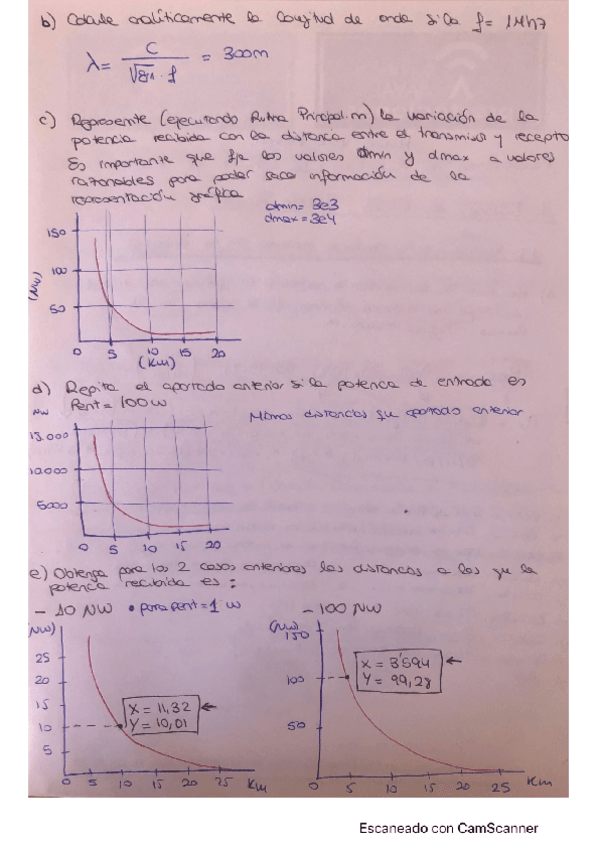 b) Calcule analíticamente la longitud de onda si la f = 1MHz
λ = C / √εr1 · f = 300m
c) Represente (ejecutando Rutina Principal.m) la variación de la
potencia recibida con la distancia entre el transmisor y receptor
Es importante que fije los valores dmin y dmax a valores
razonables para poder sacar información de la
representación gráfica
dmin = 3e3
dmax = 3e4
150
100
50
(NW)
0 5 10 15 20
(Km)
d) Repita el apartado anterior si la potencia de entrada es
Pent = 100W
Mismas distancias que apartado anterior.
NW
15.000
10.000
5000
0 5 10 15 20
e) Obtenga para los 2 casos anteriores las distancias a las que la
potencia recibida es:
- 10 NW • para Pent = 1 W
- 100 NW
(NW)
25
20
15
10
5
X = 11,32
Y = 10,01
0 5 10 15 20 25 Km
(NW)
150
100
50
X = 3'594
Y = 99,28
0 5 10 15 20 25 Km
Escaneado con CamScanner